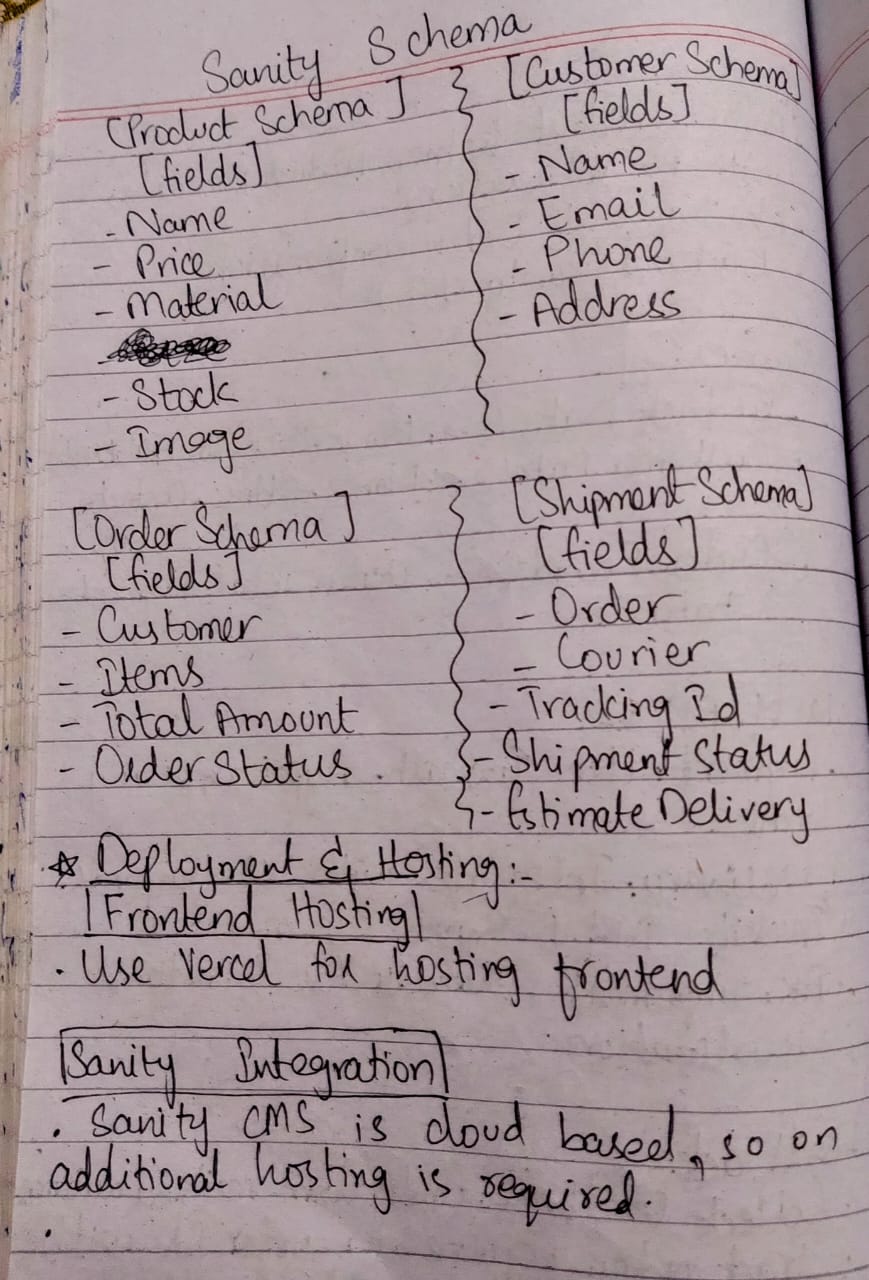 Sanity Schema
[Product Schema]
[fields]
- Name
- Price
- Material
- Stock
- Image
[Customer Schema]
[fields]
- Name
- Email
- Phone
- Address
[Order Schema]
[fields]
- Customer
- Items
- Total Amount
- Order Status.
[Shipment Schema]
[fields]
- Order
- Courier
- Tracking Id
- Shipment Status.
- Estimate Delivery
☆ Deployment & Hosting:-
|Frontend Hosting|
. Use Vercel for hosting frontend
|Sanity Integration|
. Sanity CMS is cloud based, so on
additional hosting is required.
.